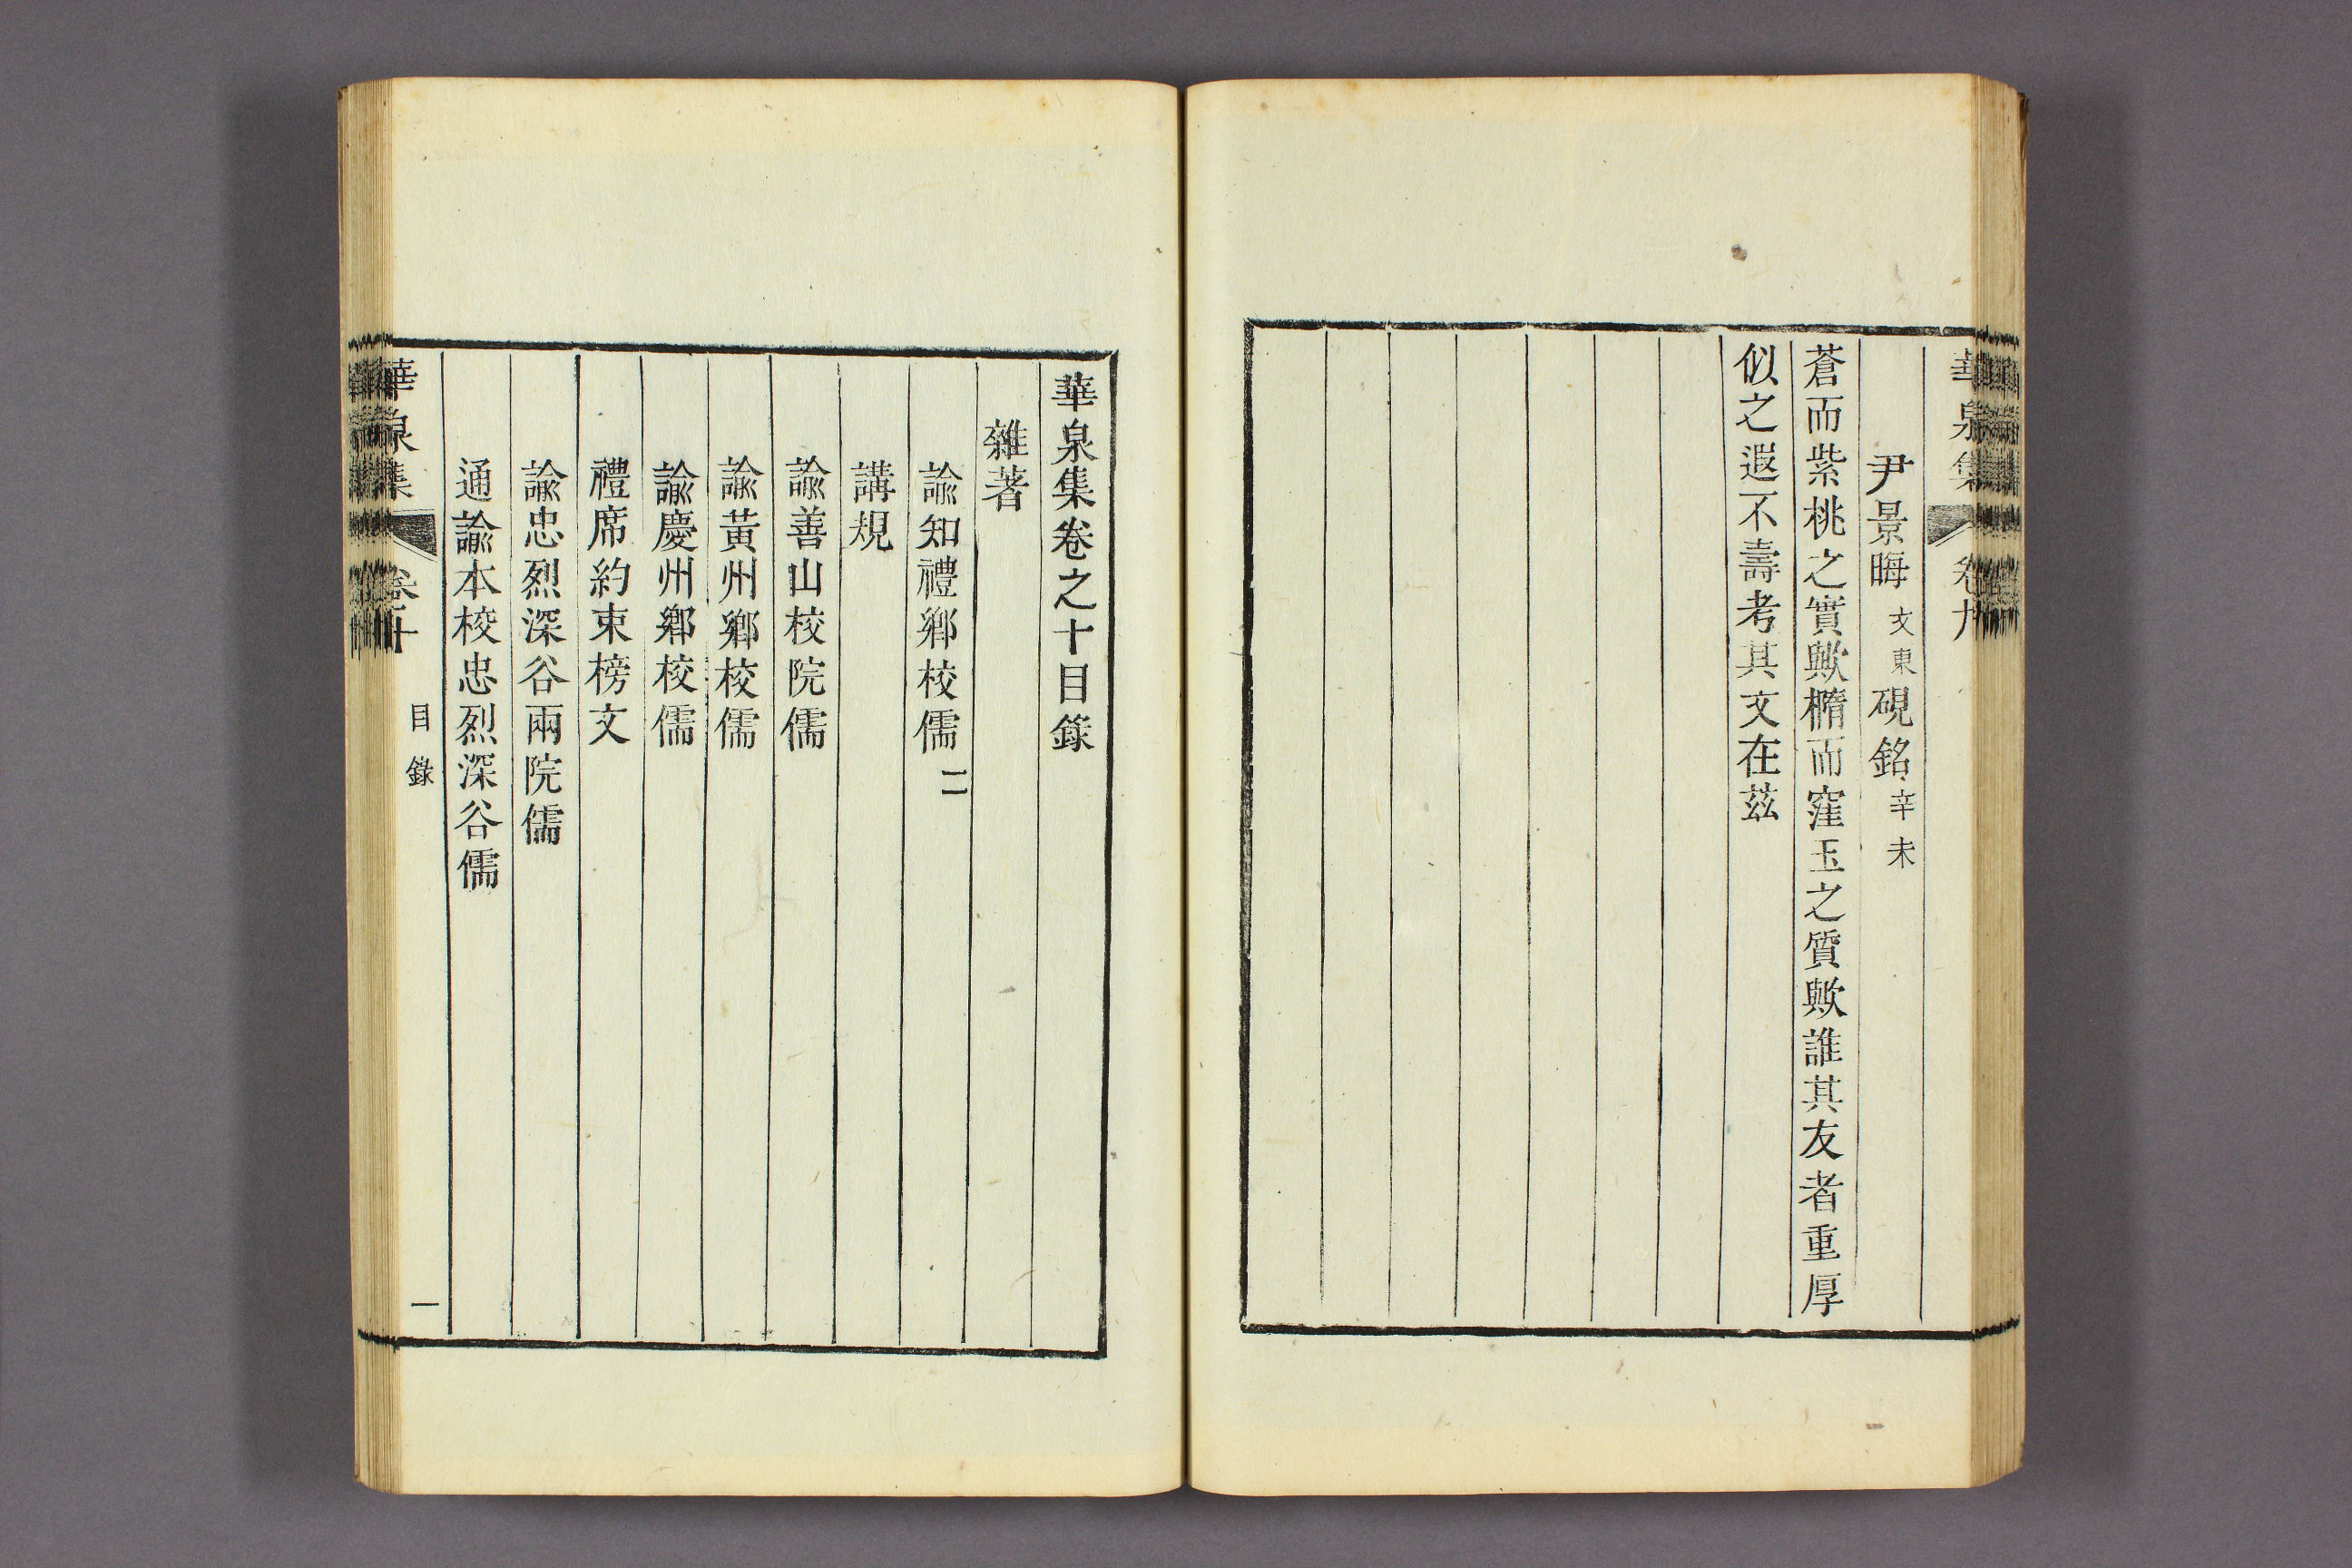 華泉集 卷九
尹景晦文東硯銘辛未
蒼而紫桃之實歟橢而窪玉之質歟誰其友者重厚
似之遐不壽考其文在茲
華泉集卷之十目錄
雜著
諭知禮鄉校儒二
講規
諭善山校院儒
諭黃州鄉校儒
諭慶州鄉校儒
禮席約束榜文
諭忠烈深谷兩院儒
通諭本校忠烈深谷儒
華泉集 卷十 目錄 一